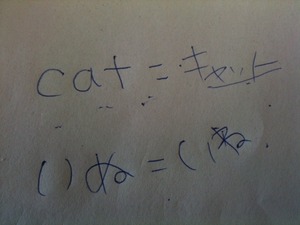 cat = キャット
いぬ =